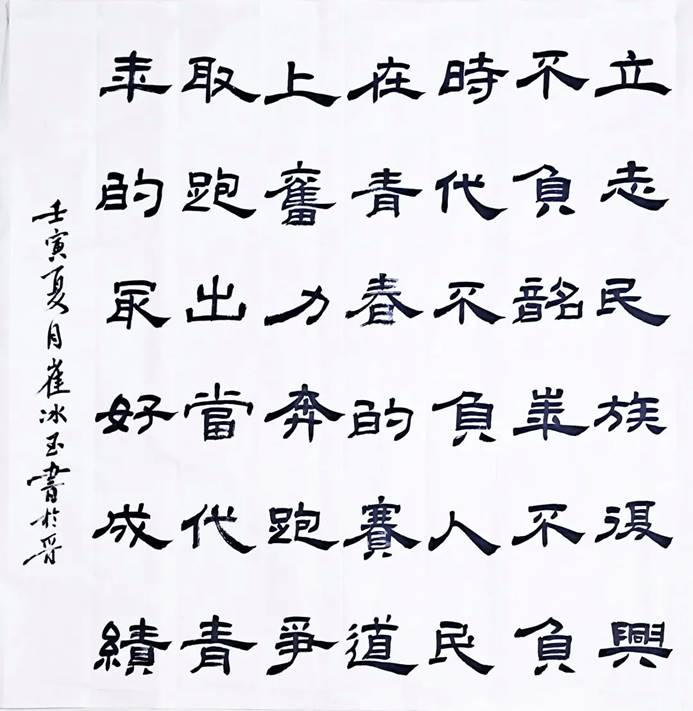 立志民族復興
不負韶華不負
時代不負人民
在青春的賽道
上奮力奔跑爭
取跑出當代青
年的最好成績
壬寅夏月崔冰玉書於晉